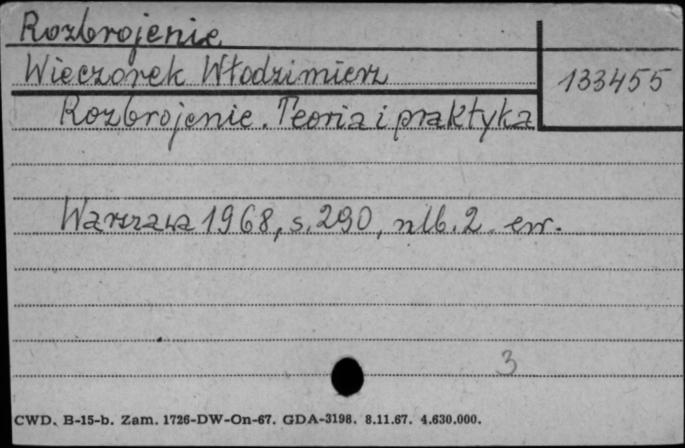 Rozbrojenie
Wieczorek Włodzimierz
133455
Rozbrojenie. Teoria i praktyka
Warszawa 1968, s. 290, nlb. 2. err.
3
CWD. B-15-b. Zam. 1726-DW-On-67. GDA-3198. 8.11.67. 4.630.000.